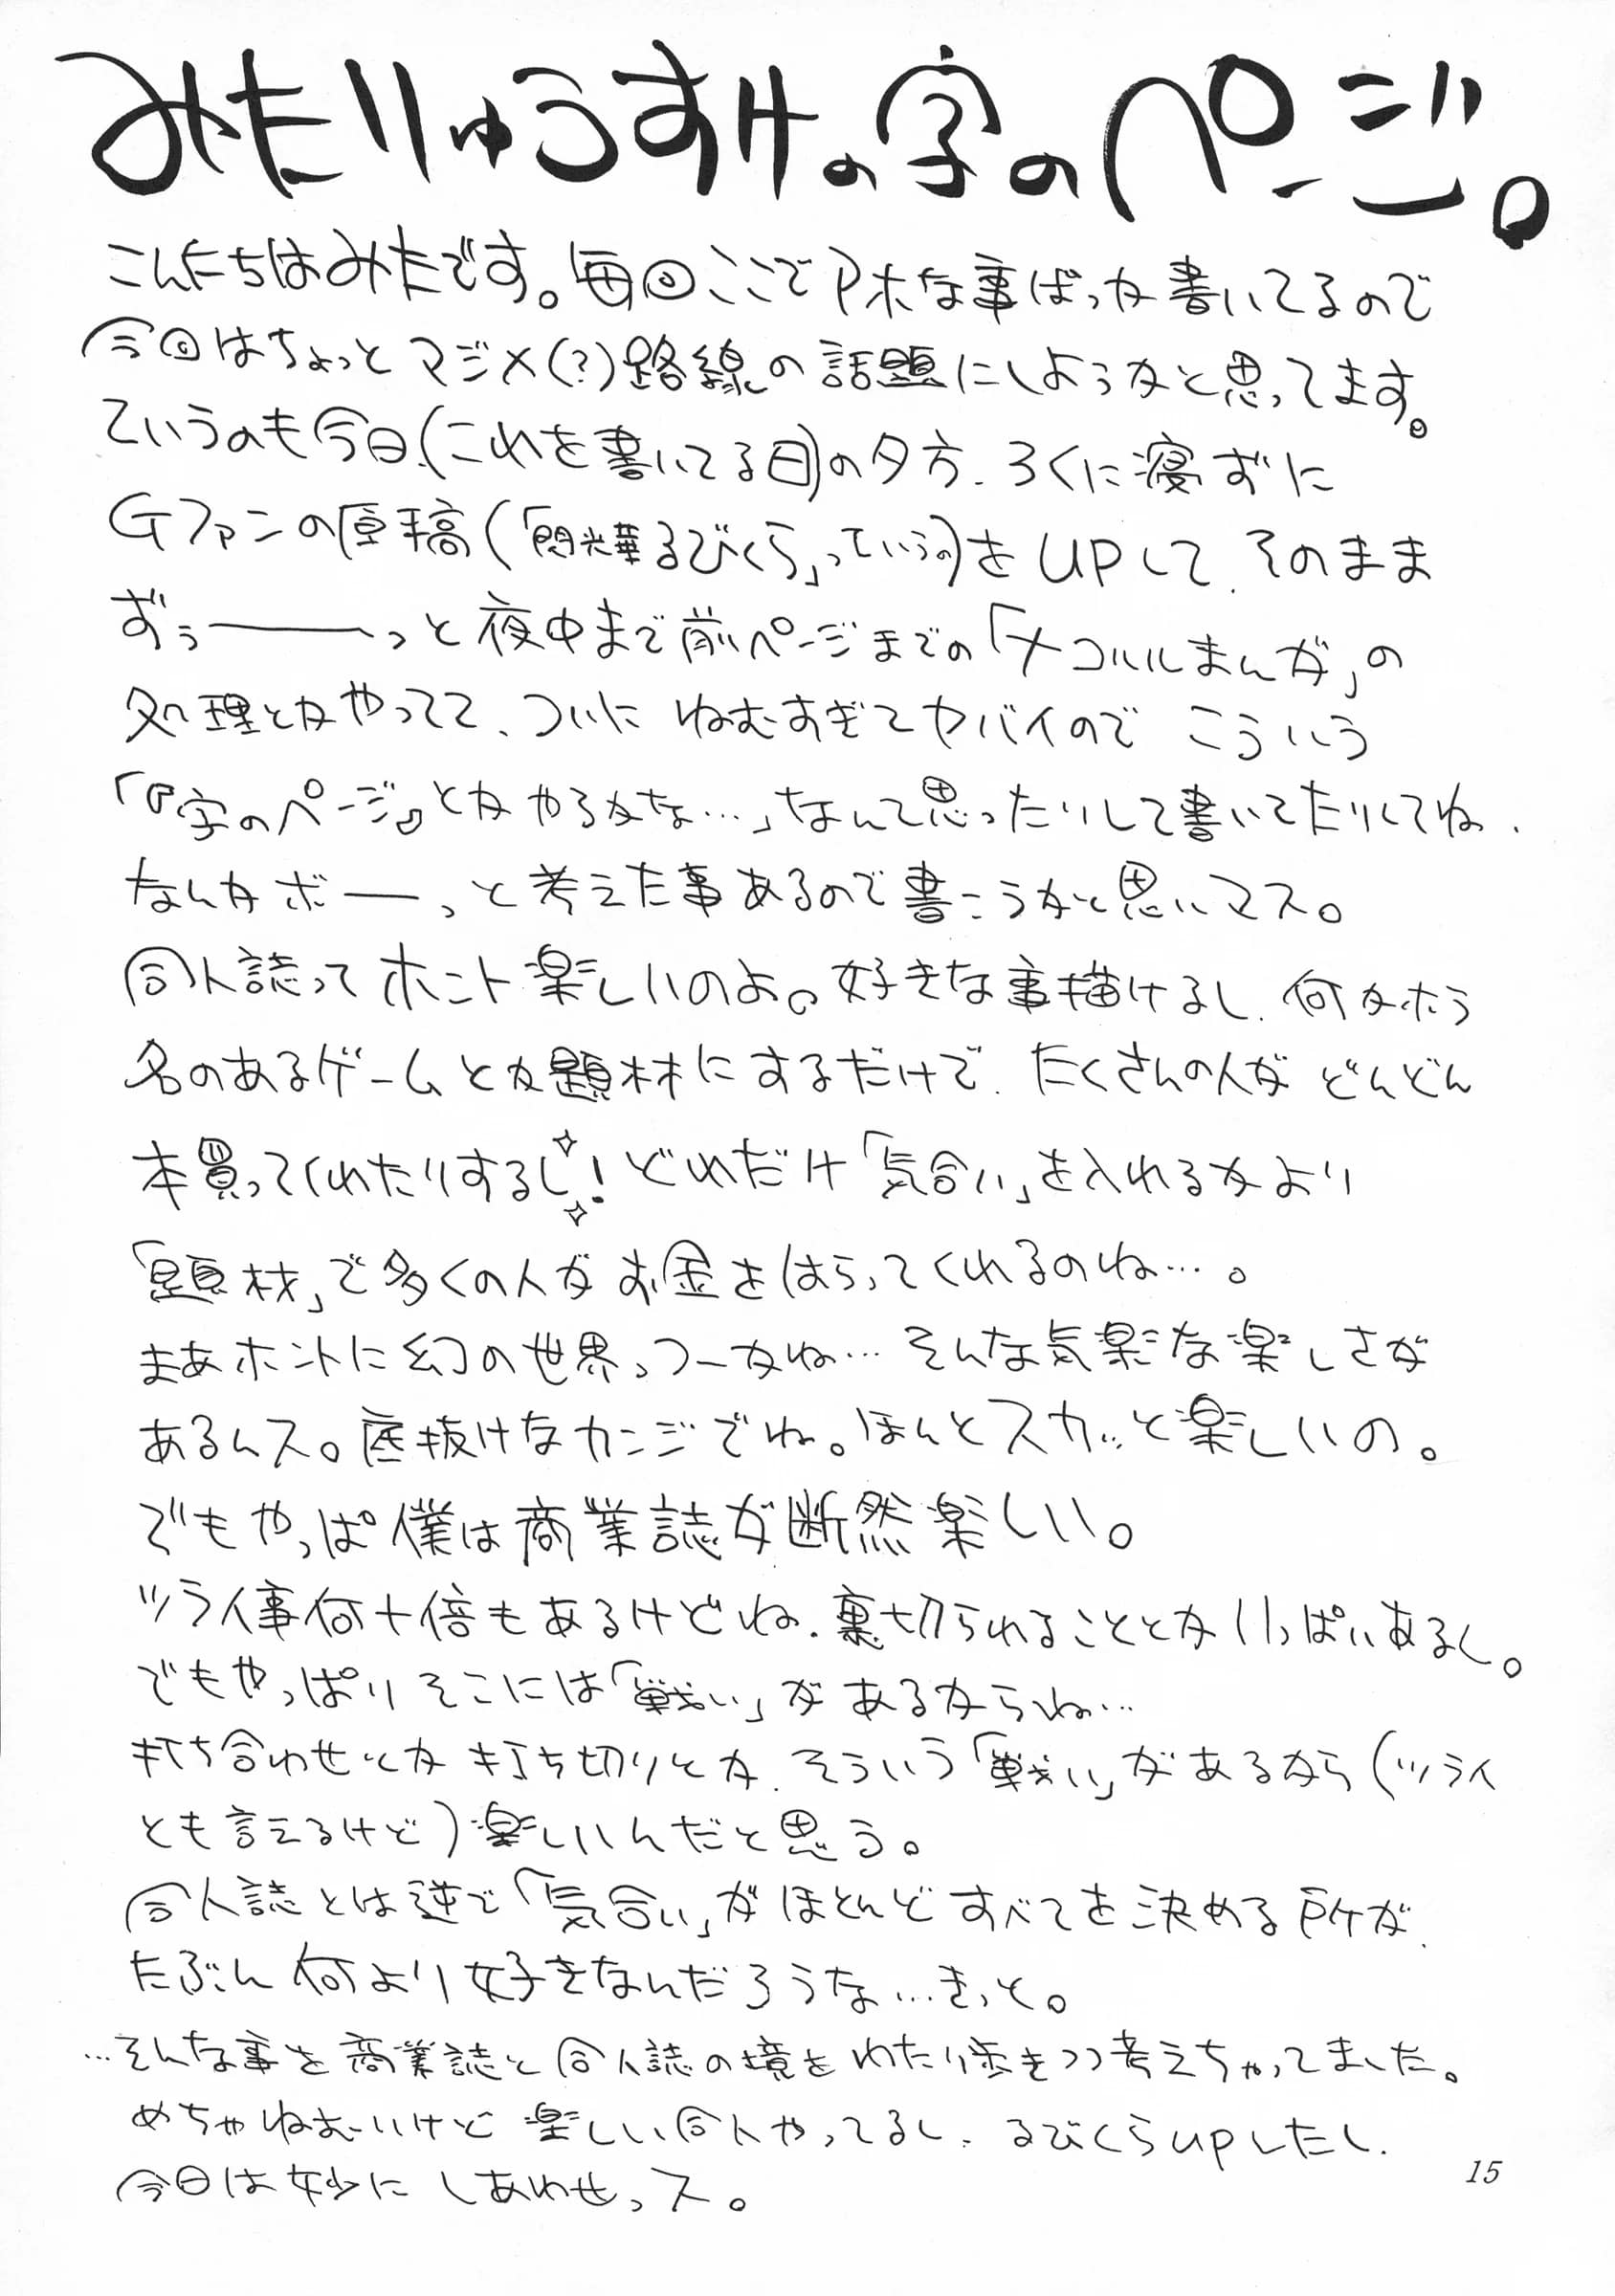 みたりゅうすけの字のページ。
こんにちはみたです。毎回ここでアホな事ばっか書いてるので
今回はちょっとマジメ(?)路線の話題にしようかと思ってます。
ていうのも今日(これを書いてる日)の夕方、ろくに寝ずに
Gファンの原稿(「閃光華るびくら」っていうの)をUPして、そのまま
ずぅ――――っと夜中まで前ページまでの「ナコルルまんが」の
処理とかやってて、ついにねむすぎてヤバイのでこういう
「『字のページ』とかやるかな…」なんて思ったりして書いてたりしてね、
なんかボ――っと考えた事あるので書こうかと思いマス。
同人誌ってホント楽しいのよ。好きな事描けるし、何かホラ
名のあるゲームとか題材にするだけで、たくさんの人がどんどん
本買ってくれたりするし!どれだけ「気合い」を入れるかより
「題材」で多くの人がお金をはらってくれるのね…。
まあホントに幻の世界っつーかね…そんな気楽な楽しさが
あるんス。底抜けなカンジでね。ほんとスカッと楽しいの。
でもやっぱ僕は商業誌が断然楽しい。
ツライ事何十倍もあるけどね、裏切られることとかいっぱいあるし。
でもやっぱりそこには「戦い」があるからね…
打ち合わせとか打ち切りとか、そういう「戦い」があるから(ツライ
とも言えるけど)楽しいんだと思う。
同人誌とは逆で「気合い」がほとんどすべてを決める所が、
たぶん何より好きなんだろうな…きっと。
…そんな事を商業誌と同人誌の境をわたり歩きつつ考えちゃってました。
めちゃねむいけど楽しい同人やってるし、るびくらupしたし、
今日は妙にしあわせっス。
15